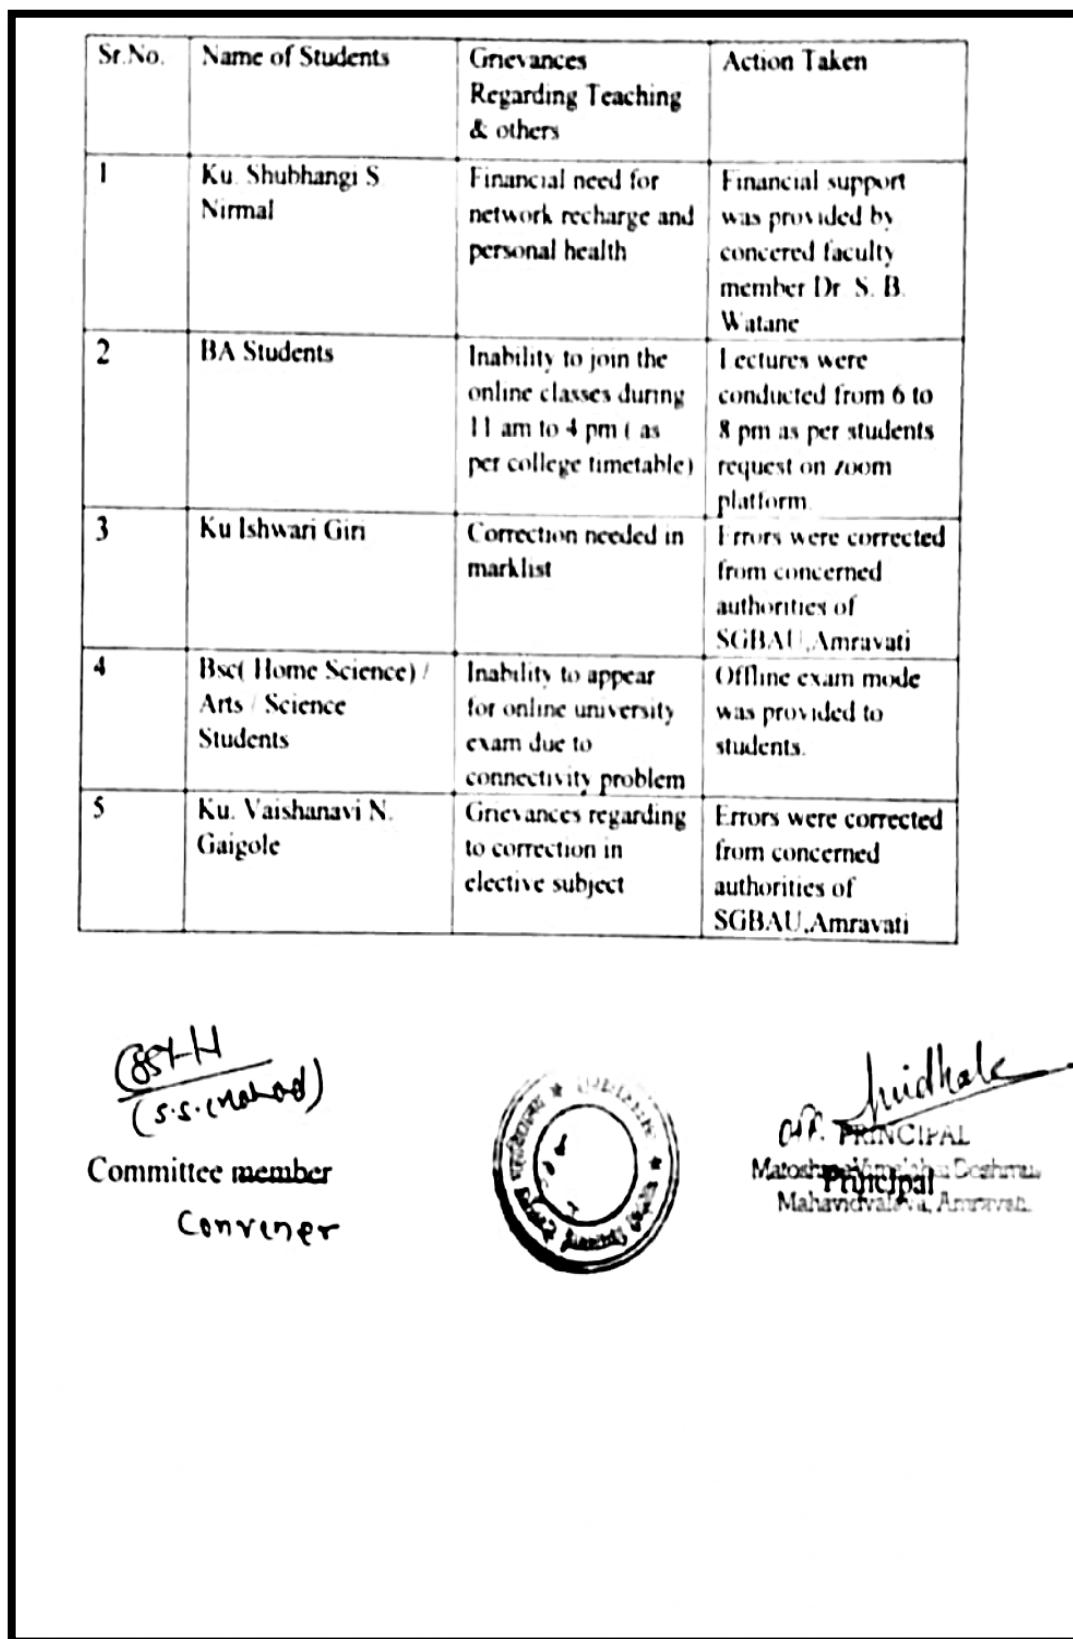 Sr.No.
Name of Students
Grievances
Regarding Teaching
& others
Action Taken
1
Ku. Shubhangi S.
Nirmal
Financial need for
network recharge and
personal health
Financial support
was provided by
concered faculty
member Dr. S. B.
Watane
2
BA Students
Inability to join the
online classes during
11 am to 4 pm ( as
per college timetable)
Lectures were
conducted from 6 to
8 pm as per students
request on zoom
platform.
3
Ku Ishwari Giri
Correction needed in
marklist
Errors were corrected
from concerned
authorities of
SGBAU,Amravati
4
Bsc( Home Science) /
Arts / Science
Students
Inability to appear
for online university
exam due to
connectivity problem
Offline exam mode
was provided to
students.
5
Ku. Vaishanavi N.
Gaigole
Grievances regarding
to correction in
elective subject
Errors were corrected
from concerned
authorities of
SGBAU,Amravati
Committee member
Convener
PRINCIPAL
Principal
Mahavidyalaya, Amravati.